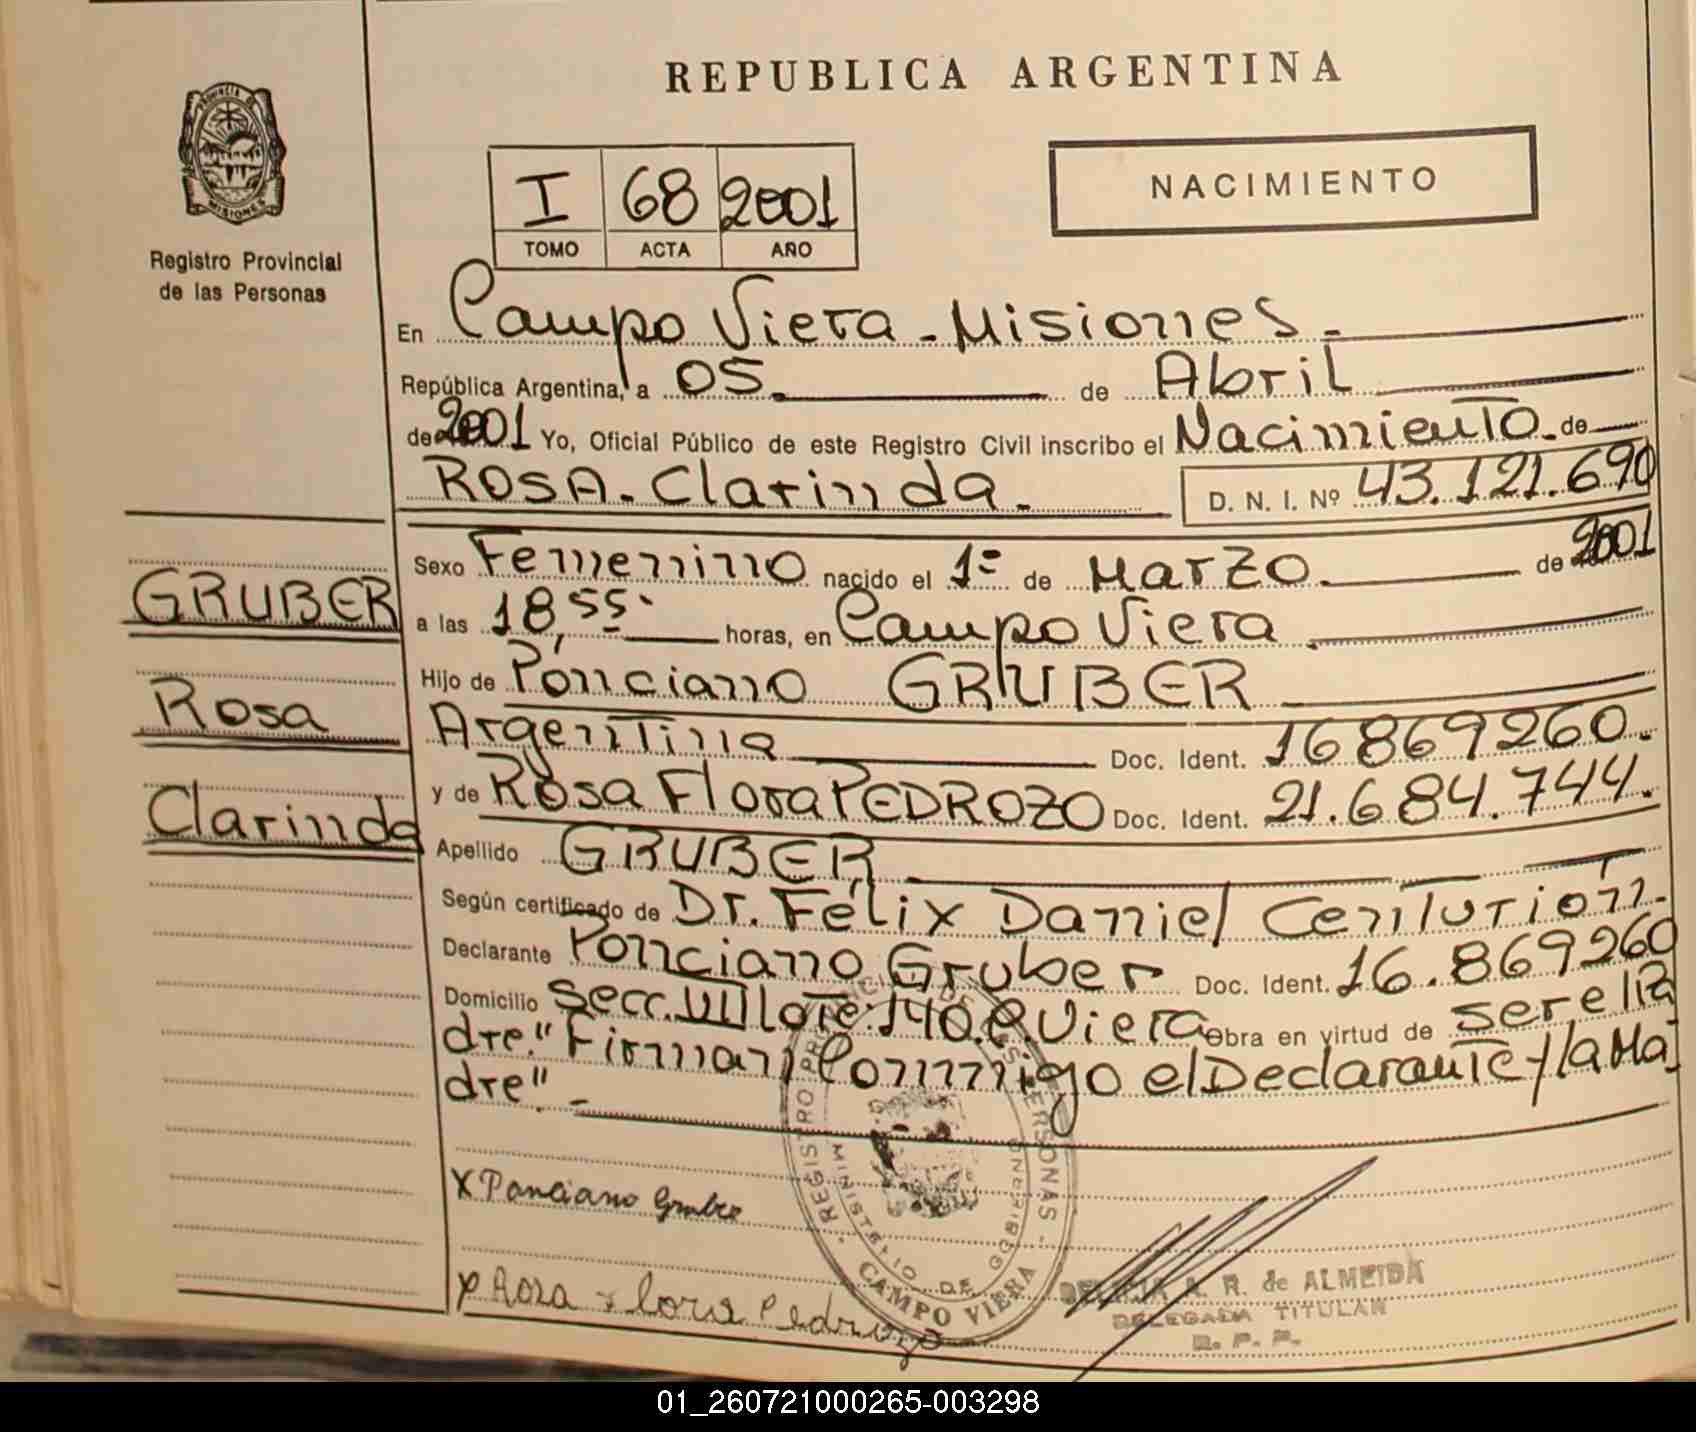 REPUBLICA ARGENTINA
PROVINCIA DE
MISIONES
Registro Provincial
de las Personas
I 68 2001
TOMO ACTA AÑO
NACIMIENTO
En Campo Viera - Misiones.
República Argentina, a 05. de Abril
de 2001 Yo, Oficial Público de este Registro Civil inscribo el Nacimiento de
ROSA. Clarinda. D. N. I. Nº 43.121.690
Sexo Femenino nacido el 1º de Marzo. de 2001
a las 18,55. horas, en Campo Viera
Hijo de Ponciano GRUBER
Argentina Doc. Ident. 16869260.
y de Rosa Flora PEDROZO Doc. Ident. 21.684.744.
Apellido GRUBER
Según certificado de Dr. Félix Daniel Centurión.
Declarante Ponciano Gruber Doc. Ident. 16.869260
Domicilio Secc. VIII Lote: 140. C. Viera Obra en virtud de ser el Pa
dre." Firman Conmigo el Declarante y la Ma
dre". -
GRUBER
Rosa
Clarinda
X Ponciano Gruber
X Rosa Flora Pedrozo
REGISTRO PROVINCIAL DE LAS PERSONAS
MINISTERIO DE GOBIERNO
CAMPO VIERA
A. R. de ALMEIDA
DELEGADA TITULAR
R. P. P.
01_260721000265-003298